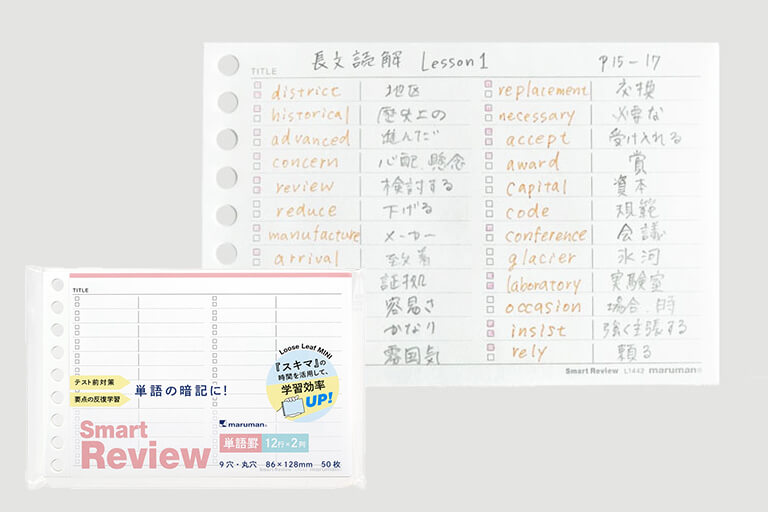 TITLE 長文読解 Lesson 1 P15-17
district 地区
historical 歴史上の
advanced 進んだ
concern 心配、懸念
review 検討する
reduce 下げる
manufacture メーカー
arrival 到着
証拠
容易さ
かなり
雰囲気
replacement 交換
necessary 必要な
accept 受け入れる
award 賞
capital 資本
code 規範
conference 会議
glacier 氷河
laboratory 実験室
occasion 場合、時
insist 強く主張する
rely 頼る
Smart Review L1442 maruman
TITLE
Loose Leaf MINI
『スキマ』の
時間を活用して、
学習効率
UP!
テスト前対策
要点の反復学習
単語の暗記に!
Smart
Review
maruman
単語罫 12行×2列
9穴・丸穴 86×128mm 50枚
Smart Review